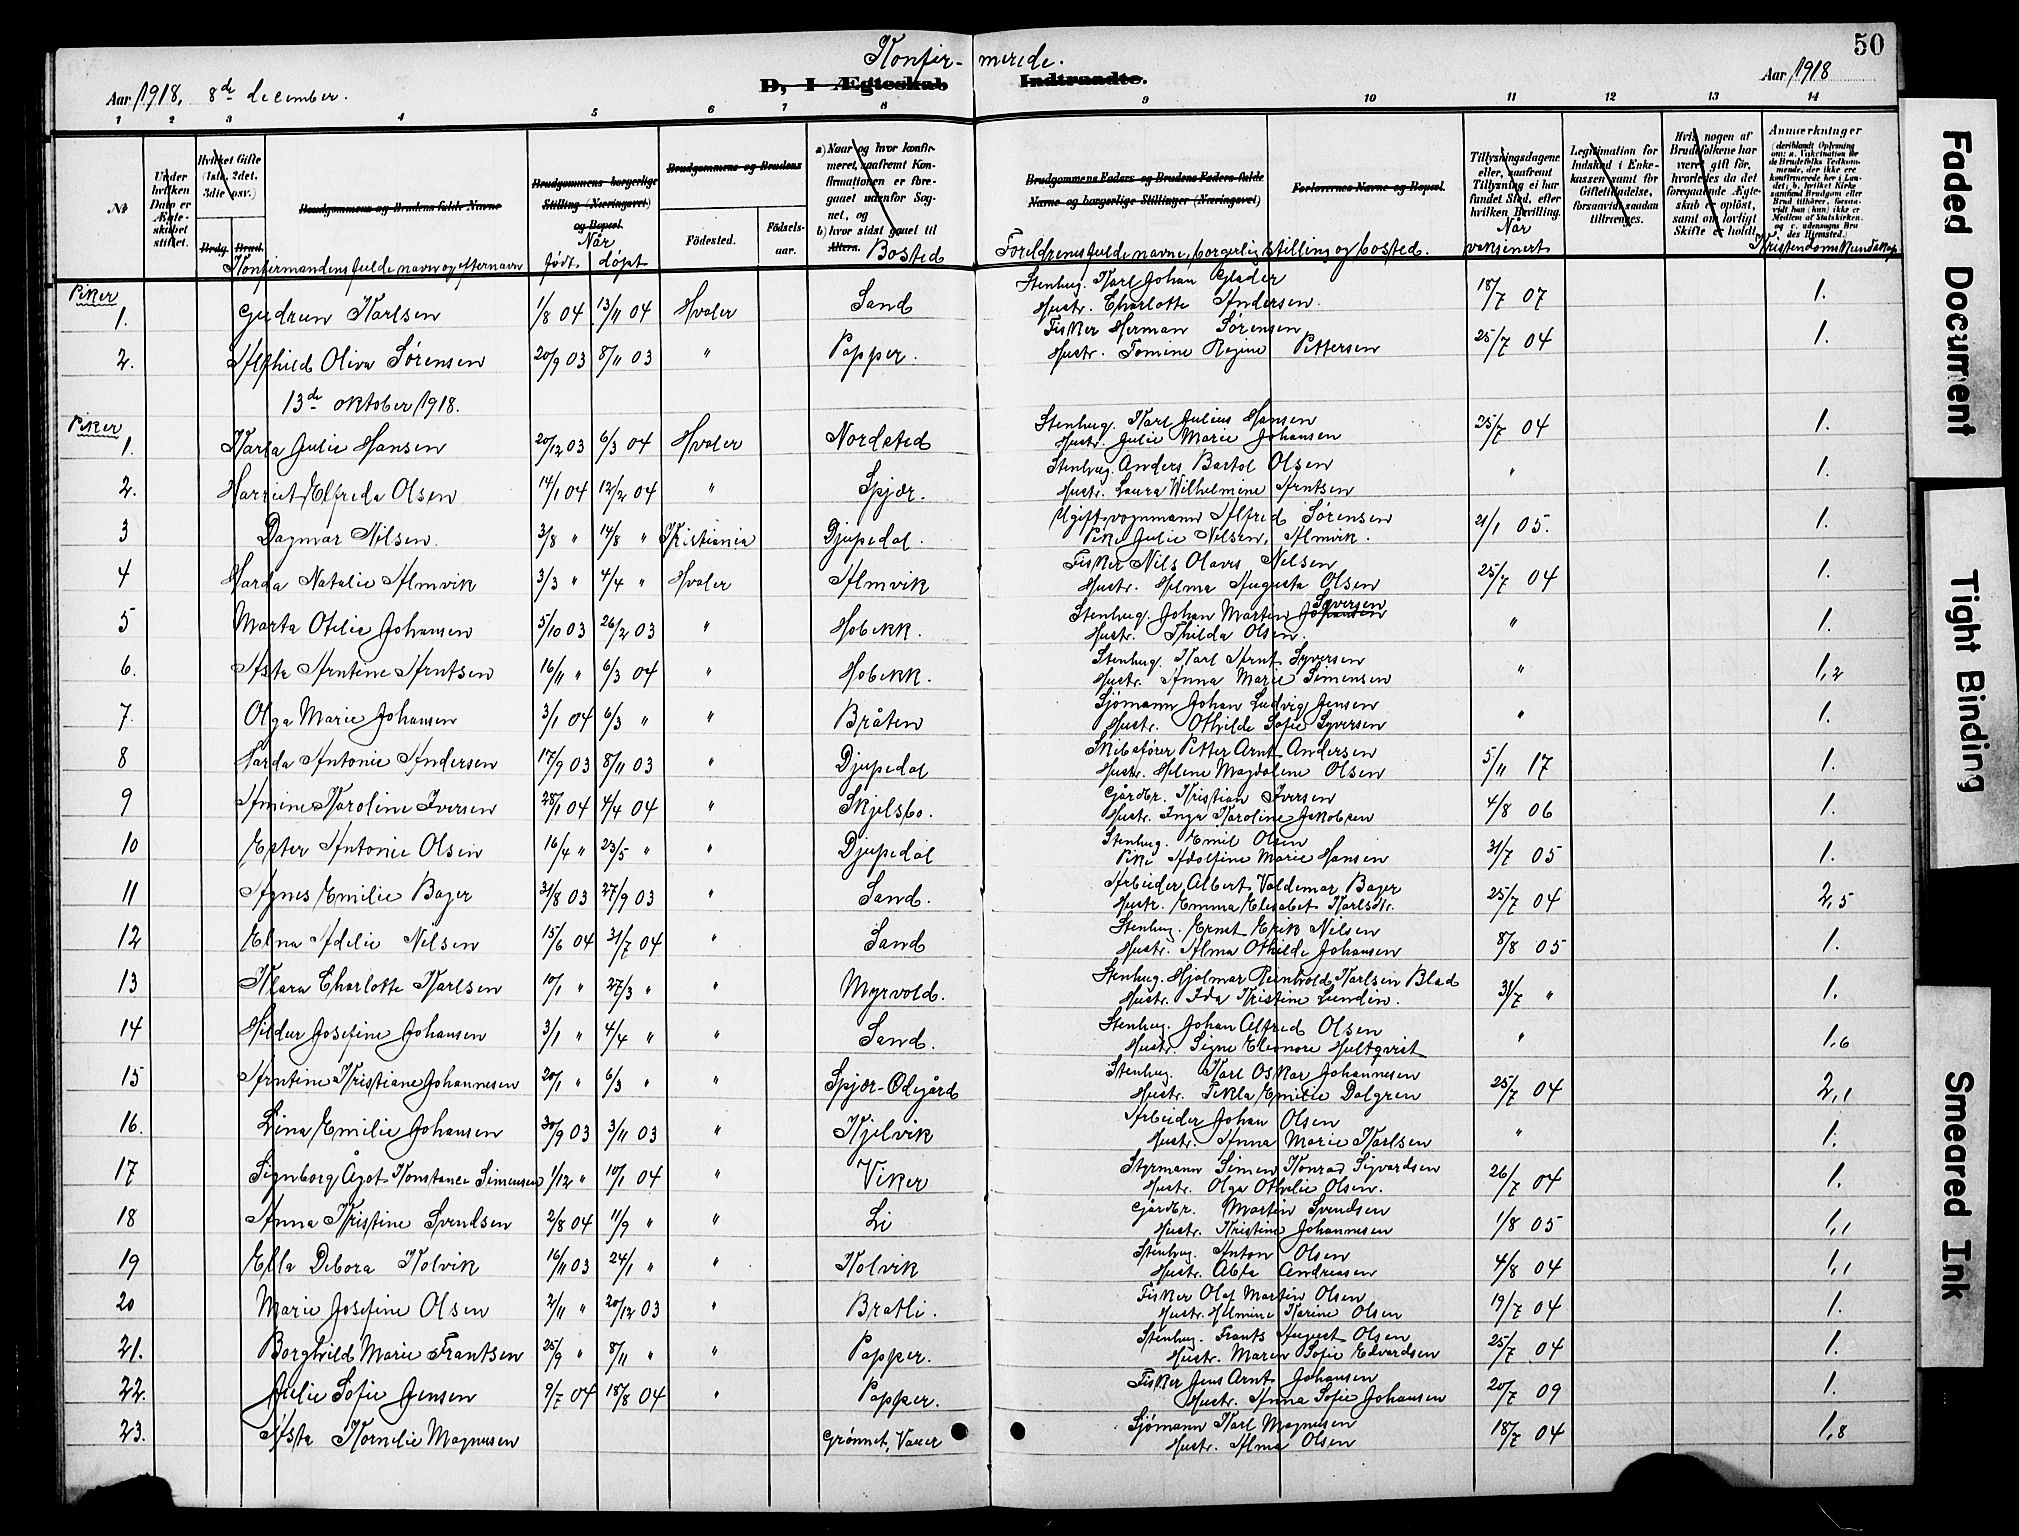 50
Konfirmerede.
D, I Ægteskab Indtraadte.
Aar 1918, 8de december.
Aar 1918
1 2 3 4 5 6 7 8 9 10 11 12 13 14
№
Under hvilken Dato er Ægteskabet stiftet.
Hvilket Gifte (1ste, 2det, 3die osv.)
Brdg. Brud.
Brudgommens og Brudens fulde Navne
Konfirmandens fulde navn og efternavn
Brudgommens borgerlige Stilling (Næringsvei) og Bopæl.
Når
født døpt
Brudgommens og Brudens
Fødested. Fødselsaar.
a) Naar og hvor konfirmeret, saafremt Konfirmationen er foregaaet udenfor Sognet, og
b) hvor sidst gaaet til Alters.
Bosted
Brudgommens Faders og Brudens Faders fulde Navne og borgerlige Stillinger (Næringsvei)
Foreldrenes fulde navne, borgerlig stilling og bosted.
Forlovernes Navne og Bopæl.
Tillysningsdagene eller, saafremt Tillysning ei har fundet Sted, efter hvilken Bevilling.
Når vaksinert
Legitimation for Indskud i Enkekassen samt for Giftetilladelse, forsaavidt saadan tiltrænges.
Hvis nogen af Brudefolkene har været gift før, hvorledes da det foregaaende Ægteskab er opløst, samt om lovligt Skifte er holdt.
Anmærkninger
Kristendomskundskap
Piker
1. Gudrun Karlsen 1/8 04 13/11 04 Hvaler Sand Stenhug. Karl Johan Glader 18/7 07 1.
Hustr. Charlotte Andersen.
2. Alfhild Oliva Sørensen 20/9 03 8/11 03 " Papper. Fisker Herman Sørensen 25/7 04 1.
Hustr. Tomine Regine Pettersen
13de oktober 1918.
Piker
1. Karla Julie Hansen 20/12 03 6/3 04 Hvaler Nordsted Stenhug. Karl Julius Hansen 25/7 04 1.
Hustr. Julie Marie Johansen
2. Harriet Elfreda Olsen 14/1 04 12/2 04 " Spjær. Stenhug. Anders Bartol Olsen " 1.
Hustr. Laura Wilhelmine Arntsen
3 Dagmar Nilsen. 3/8 " 14/8 " Kristiania Djupedal. Ugift vognmann Alfred Sørensen 21/1 05. 1.
Pike Julie Nilsen, Almvik.
4 Harda Natalie Almvik 3/3 " 4/4 " Hvaler Almvik Fisker Nils Olaves Nelsen 25/7 04 1.
Hustr. Helma Augusta Olsen
5 Marta Otelie Johansen 5/10 03 26/2 03 " Hobekk. Stenhug. Johan Marten Johansen Syversen " 1.
Hustr. Thilda Olsen.
6. Asta Arntine Arntsen 16/11 " 6/3 04 " Hobekk. Stenhug. Karl Arnt Syversen " 1,2
Hustr. Anna Marie Simensen
7. Olga Marie Johansen 3/1 04 6/3 " " Bråten Sjømann Johan Ludvig Jensen " 1.
Hustr. Othilde Sofie Syversen
8 Harda Antonie Andersen 17/9 03 8/11 03 " Djupedal Skibsfører Petter Arnt Andersen 5/11 17 1.
Hustr. Helene Magdalene Olsen
9 Amine Karoline Iversen 28/1 04 4/4 04 " Skjelsbo. Gårdbr. Kristian Iversen 4/8 06 1.
Hustr. Inga Karoline Jakobsen
10 Ester Antonie Olsen 16/4 " 23/5 " " Djupedal Stenhug. Emil Olsen 31/7 05 1.
Pike Adolfine Marie Hansen
11 Agnes Emilie Bajer 31/8 03 27/9 03 " Sand. Arbeider Albert Valdemar Bajer 25/7 04 2,5
Hustr. Emma Elisabet Karlsdtr.
12 Elna Adelie Nilsen 15/6 04 31/7 04 " Sand Stenhug. Ernst Erik Nilsen 8/8 05 1.
Hustr. Alma Othilde Johansen
13 Klara Charlotte Karlsen 10/1 " 27/3 " " Myrvold. Stenhug. Hjalmar Reinhold Karlsen Blad 31/7 " 1.
Hustr. Ida Kristine Lunden.
14 Hildur Josefine Johansen 3/1 " 4/4 " " Sand. Stenhug. Johan Alfred Olsen " 1,6
Hustr. Signe Eleonore Hultqvist
15 Arntine Kristiane Johannesen 20/1 " 6/3 " " Spjær-Ødegård Stenhug. Karl Oskar Johannesen 25/7 04 2,1
Hustr. Tekla Emilie Dalgren
16. Lina Emilie Johansen 30/9 03 3/11 03 " Kjelvik Arbeider Johan Olsen " 1.
Hustr. Anna Marie Karlsen
17 Signborg Ågot Konstance Simensen 1/12 " 10/1 04 " Viker Styrmann Simen Konrad Sigvardsen 26/7 04 1.
Hustr. Olga Othelie Olsen.
18 Anna Kristine Svendsen 2/8 04 11/9 " " Li Gårdbr. Martin Svendsen 1/8 05 1,1
Hustr. Kristine Johannesen
19 Ella Debora Kolvik 16/11 03 24/1 " " Kolvik Stenhug. Anton Olsen 4/8 04 1,1
Hustr. Abla Andreasen
20 Marie Josefine Olsen 2/11 " 20/12 03 " Bratli. Fisker Olaf Martin Olsen 19/7 04 1.
Hustr. Helmine Karine Olsen
21. Borghild Marie Frantsen 25/9 " 8/11 " " Papper. Stenhug. Frants August Olsen 25/7 04 1.
Hustr. Maren Sofie Edvardsen
22. Atelie Sofie Jensen 9/7 04 18/8 04 " Papper. Fisker Jens Arnt Johansen 20/7 09 1.
Hustr. Anna Sofie Johansen
23. Asta Kornelie Magnusen Grønnet, Vauer Sjømann Karl Magnusen 18/7 04 1,8
Hustr. Alma Olsen
Faded Document
Tight Binding
Smeared Ink